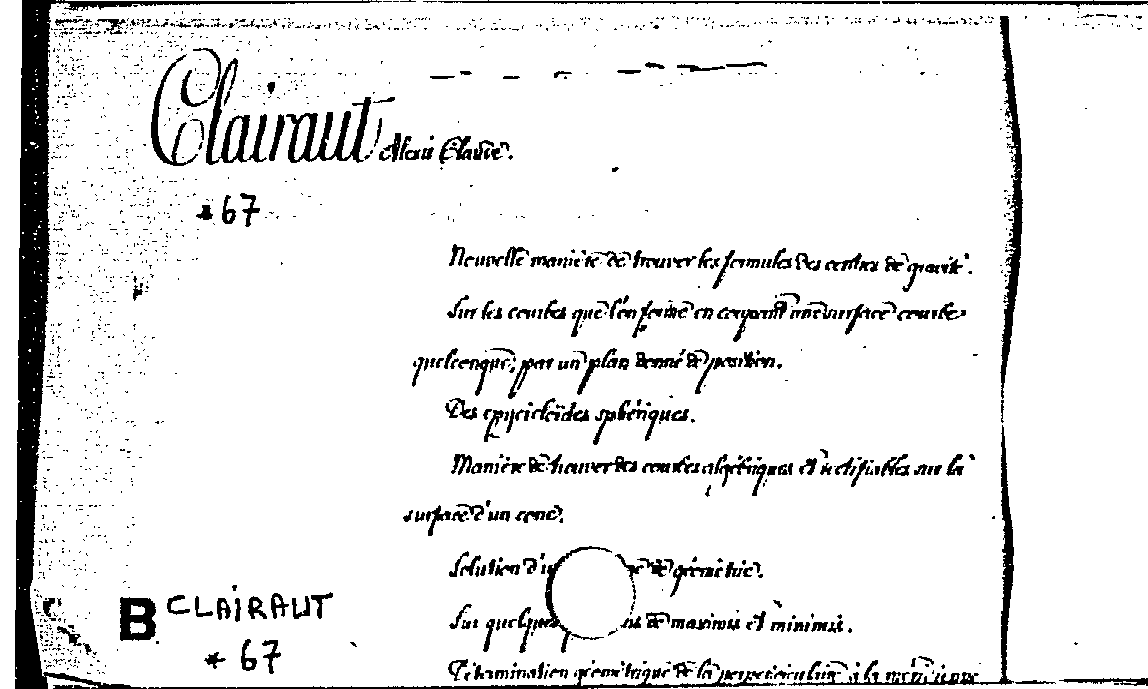 Clairaut Alexis Claude.
* 67
Nouvelle manière de trouver les formules des centres de gravité.
Sur les courbes que l'on forme en coupant une surface courbe
quelconque, par un plan donné de position.
Des epicicloïdes sphériques.
Manière de trouver des courbes algébriques et rectifiables sur la
surface d'un cone.
Solution d'u de géométrie.
Sur quelques de maximis et minimis.
Détermination géometrique de la perpendiculaire à la méridienne
B CLAIRAUT
* 67